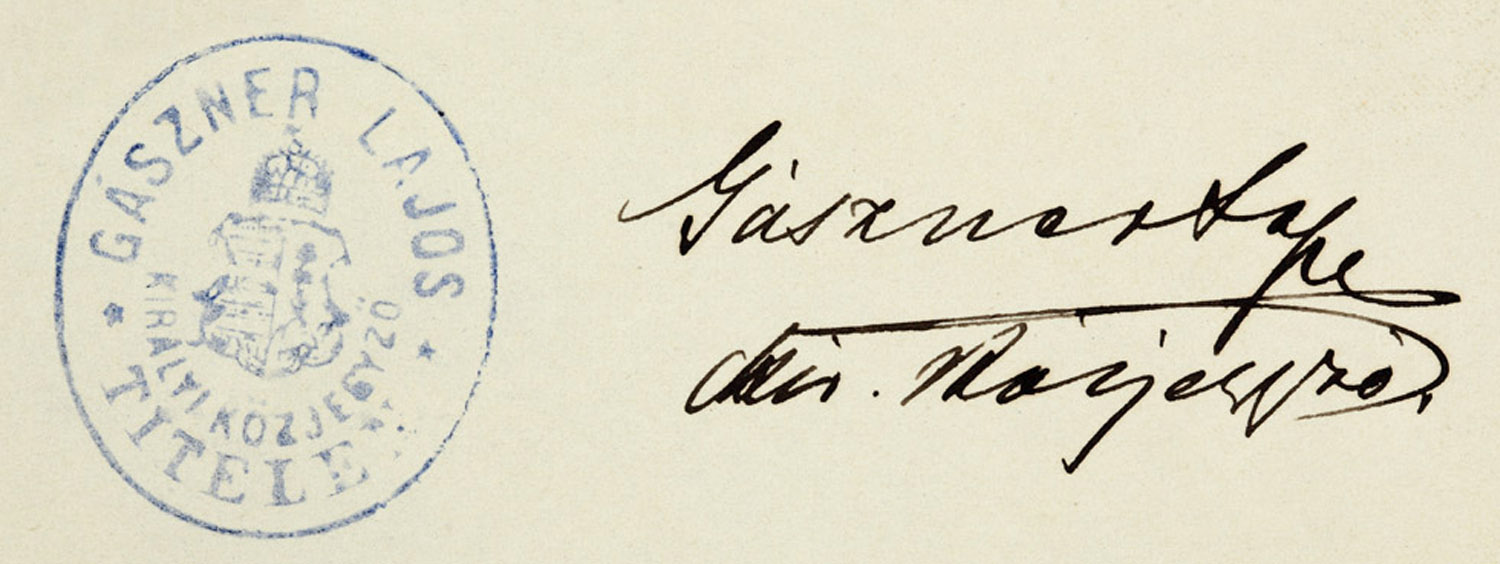 GÁSZNER LAJOS
KIRÁLYI KÖZJEGYZŐ
TITELEN
Gászner Lajos
kir. közjegyző